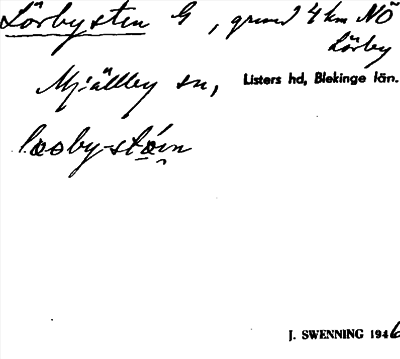 Lörbysten G, grund 4 km NÖ
Lörby
Mjällby sn, Listers hd, Blekinge län.
J. SWENNING 1946